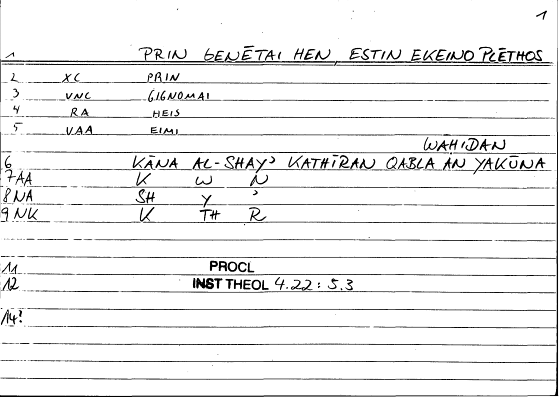 1
1 PRIN GENĒTAI HEN, ESTIN EKEINO PLĒTHOS
2 XC PRIN
3 VNC GIGNOMAI
4 RA HEIS
5 VAA EIMI
WĀHIDAN
6 KĀNA AL-SHAY' KATHĪRAN QABLA AN YAKŪNA
7AA K W N
8NA SH Y '
9NK K TH R
11 PROCL
12 INST THEOL 4.22: 5.3
14?